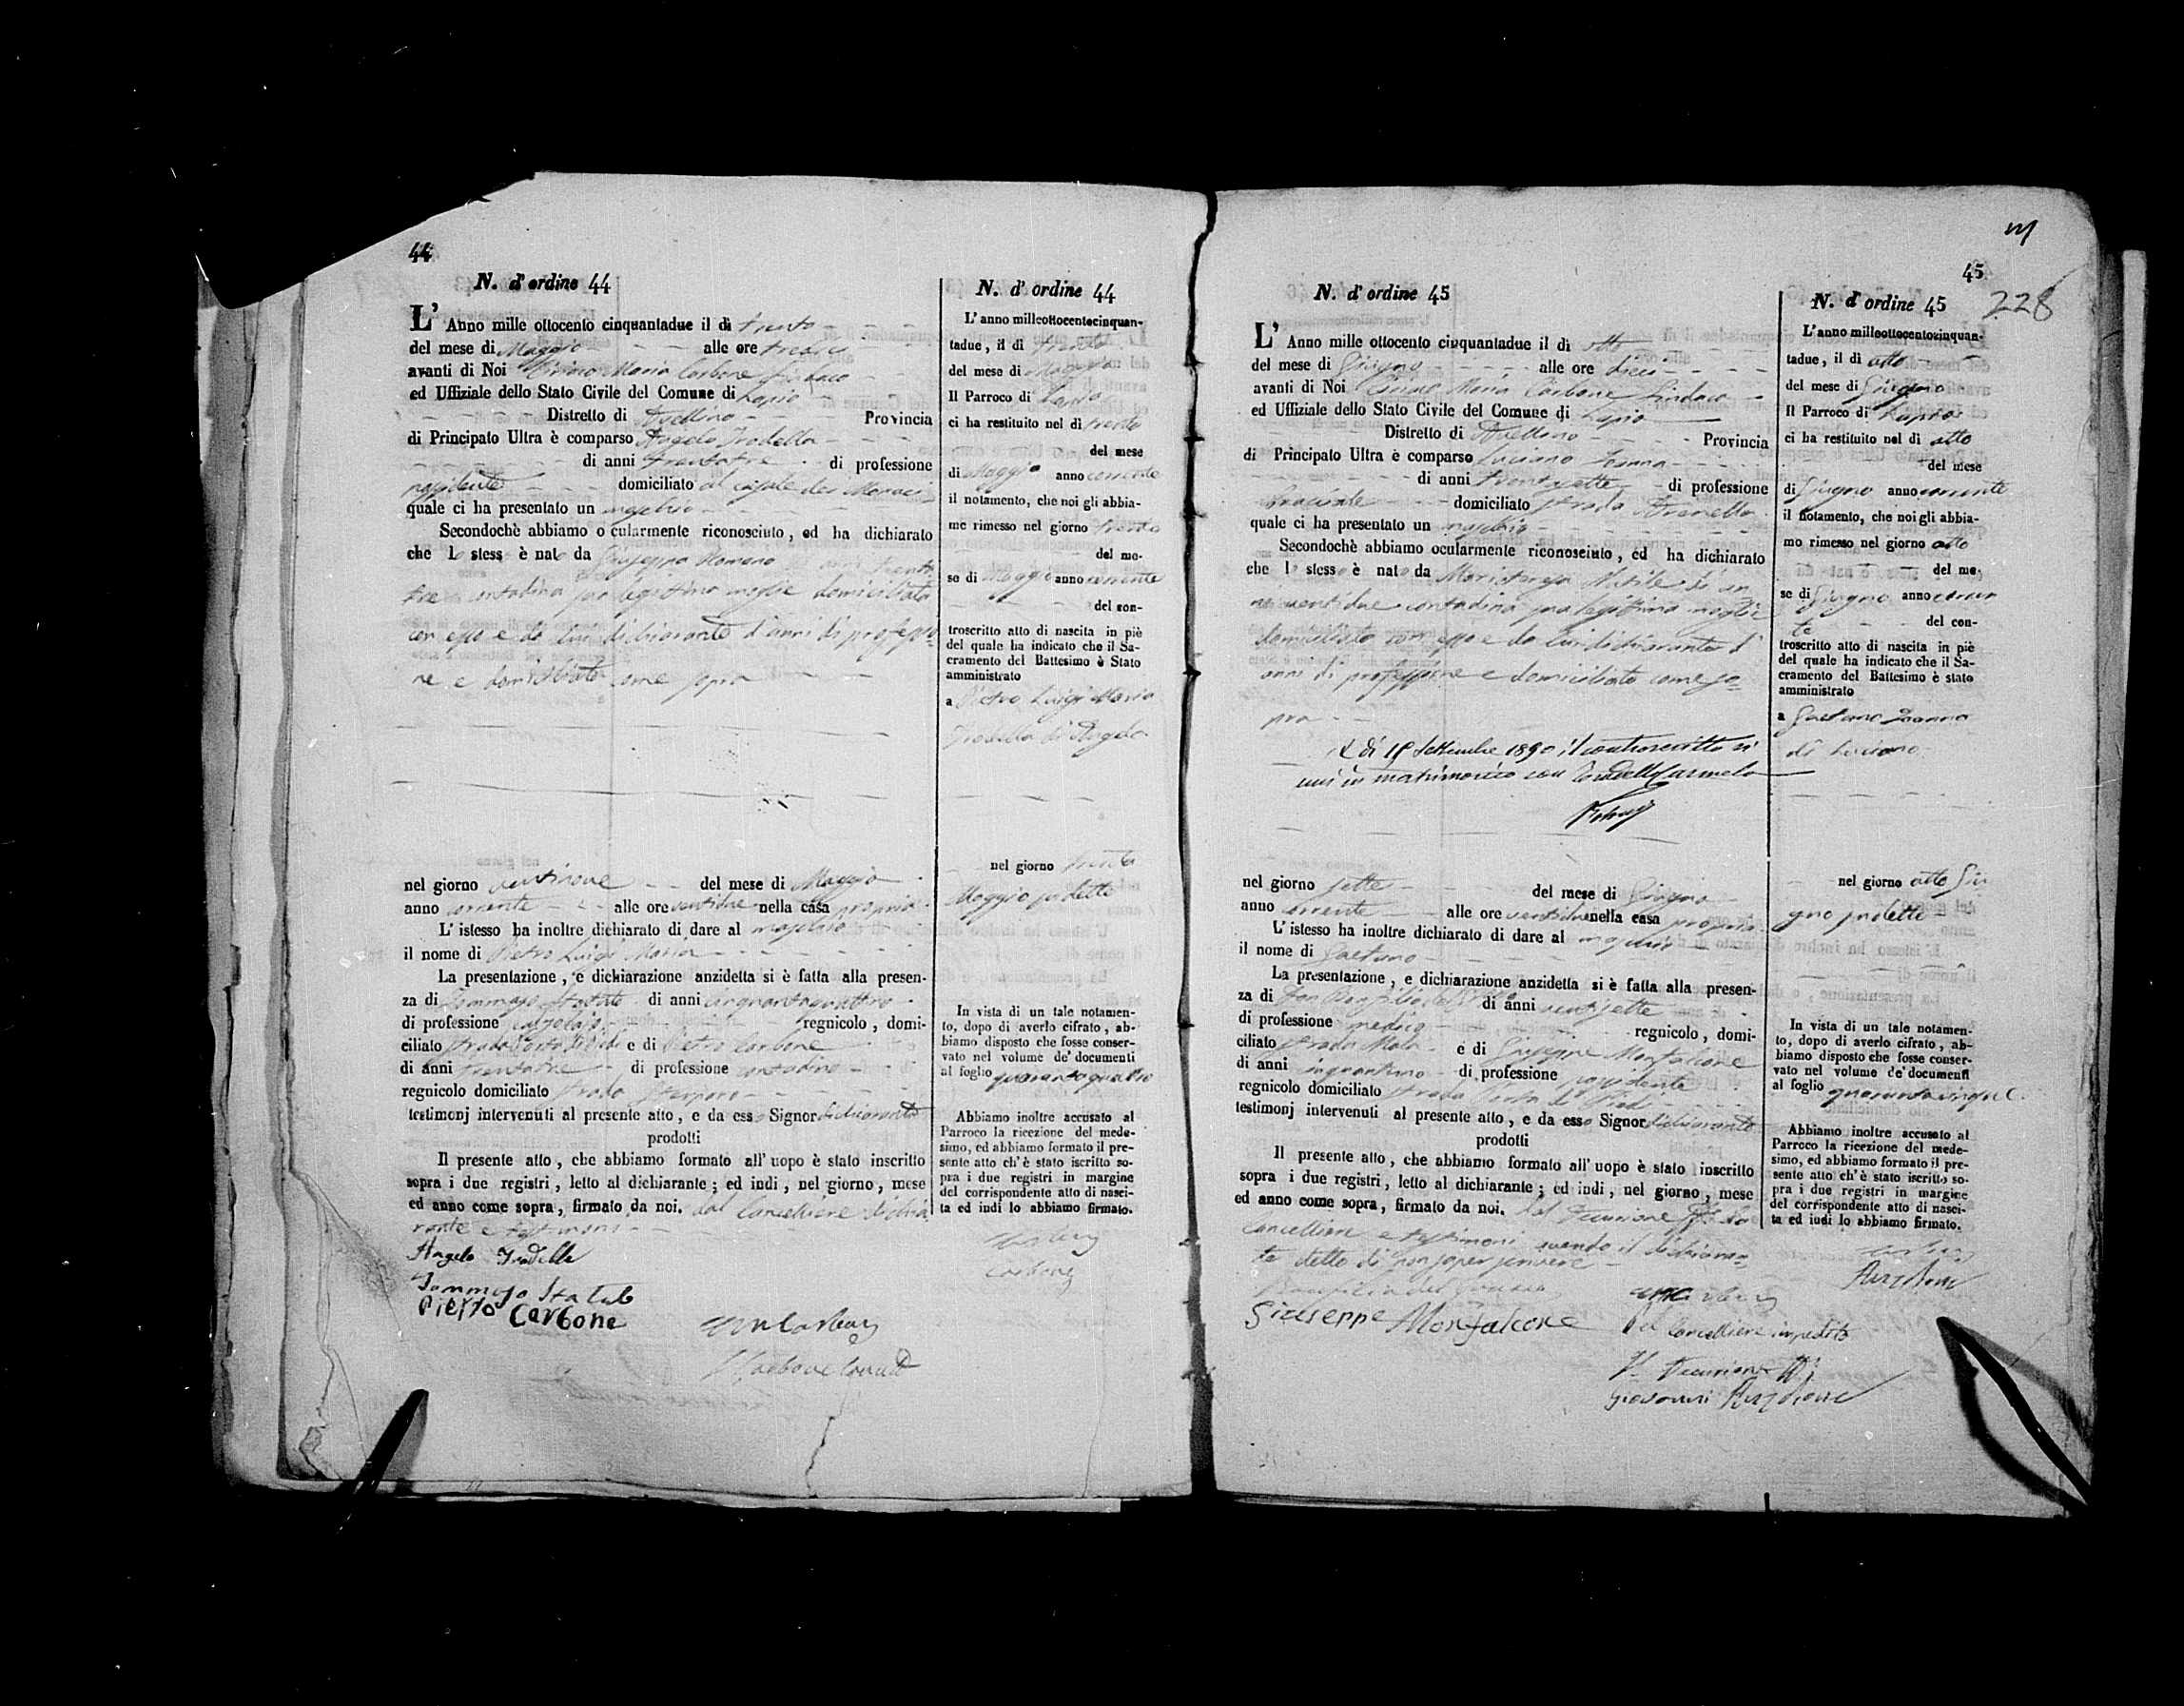 44
N. d'ordine 44
L' Anno mille ottocento cinquantadue il di trenta
del mese di Maggio alle ore tredici
avanti di Noi Maria Carbone Sindaco
ed Uffiziale dello Stato Civile del Comune di Lapio
Distretto di Avellino Provincia
di Principato Ultra è comparso Angelo Trodella
di anni trentatre di professione
possidente domiciliato al casale dei Monaci
quale ci ha presentato un maschio
Secondochè abbiamo o cularmente riconosciuto, ed ha dichiarato
che l stess è nato da Giuseppa Romano anni trenta
tre contadina sua legittima moglie domiciliata
con esso e da lui dichiarante d'anni di professio
ne e domiciliato come sopra
nel giorno ventinove del mese di Maggio
anno corrente alle ore ventidue nella casa propria
L' istesso ha inoltre dichiarato di dare al maschio
il nome di Pietro Luigi Maria
La presentazione, e dichiarazione anzidetta si è fatta alla presen-
za di Tommaso Statuto di anni cinquantaquattro
di professione calzolajo regnicolo, domi-
ciliato strada e di Pietro Carbone
di anni trentatre di professione contadino
regnicolo domiciliato strada
testimonj intervenuti al presente atto, e da esso Signor dichiarante
prodotti
Il presente atto, che abbiamo formato all' uopo è stato inscritto
sopra i due registri, letto al dichiarante; ed indi, nel giorno, mese
ed anno come sopra, firmato da noi. dal Cancelliere dichia
rante e testimoni
Angelo Trodella
Tommaso
Pietro Carbone
N. d' ordine 44
L' anno milleottocentocinquan-
tadue, il di trenta
del mese di Maggio
Il Parroco di Lapio
ci ha restituito nel di trenta
del mese
di Maggio anno corrente
il notamento, che noi gli abbia-
mo rimesso nel giorno trenta
del me-
se di Maggio anno corrente
del con-
troscritto atto di nascita in piè
del quale ha indicato che il Sa-
cramento del Battesimo è Stato
amministrato
a Pietro Luigi Maria
Trodella di Angelo
nel giorno trenta
Maggio sudetto
In vista di un tale notamen-
to, dopo di averlo cifrato, ab-
biamo disposto che fosse conser-
vato nel volume de' documenti
al foglio quarantaquattro
Abbiamo inoltre accusato al
Parroco la ricezione del mede-
simo, ed abbiamo formato il pre-
sente atto ch' è stato iscritto so-
pra i due registri in margine
del corrispondente atto di nasci-
ta ed indi lo abbiamo firmato.
Carbone
45
228
N. d' ordine 45
L' Anno mille ottocento cinquantadue il di otto
del mese di Giugno alle ore dieci
avanti di Noi Maria Carbone Sindaco
ed Uffiziale dello Stato Civile del Comune di Lapio
Distretto di Avellino Provincia
di Principato Ultra è comparso Luciano Ioanna
di anni trentasette di professione
bracciale domiciliato strada
quale ci ha presentato un maschio
Secondochè abbiamo ocularmente riconosciuto, ed ha dichiarato
che lo stesso è nato da Mariateresa di an
ni ventidue contadina sua legittima moglie
domiciliata con esso e da lui dichiarante d'
anni di professione e domiciliato come so-
pra
settembre 1890 il controscritto si
unì in matrimonio con
nel giorno sette del mese di Giugno
anno corrente alle ore ventidue nella casa propria
L' istesso ha inoltre dichiarato di dare al maschio
il nome di Gaetano
La presentazione, e dichiarazione anzidetta si è fatta alla presen-
za di Don di anni ventisette
di professione medico regnicolo, domi-
ciliato strada e di Giuseppe Monfalcone
di anni cinquantuno di professione possidente
regnicolo domiciliato strada
testimonj intervenuti al presente atto, e da esso Signor dichiarante
prodotti
Il presente atto, che abbiamo formato all' uopo è stato inscritto
sopra i due registri, letto al dichiarante; ed indi, nel giorno, mese
ed anno come sopra, firmato da noi. dal Decurione
Cancelliere e testimoni avendo il dichiaran-
te detto di non saper scrivere
Giuseppe Monfalcone
Pel Cancelliere impedito
Il Decurione
Giovanni
N. d' ordine 45
L' anno milleottocentocinquan-
tadue, il di otto
del mese di Giugno
Il Parroco di Lapio
ci ha restituito nel di otto
del mese
di Giugno anno corrente
il notamento, che noi gli abbia-
mo rimesso nel giorno otto
del me-
se di Giugno anno corren
te del con-
troscritto atto di nascita in piè
del quale ha indicato che il Sa-
cramento del Battesimo è stato
amministrato
a Gaetano Ioanna
di Luciano
nel giorno otto Giu
gno sudetto
In vista di un tale notamen-
to, dopo di averlo cifrato, ab-
biamo disposto che fosse conser-
vato nel volume de' documenti
al foglio quarantacinque
Abbiamo inoltre accusato al
Parroco la ricezione del mede-
simo, ed abbiamo formato il pre-
sente atto ch' è stato iscritto so-
pra i due registri in margine
del corrispondente atto di nasci-
ta ed indi lo abbiamo firmato.